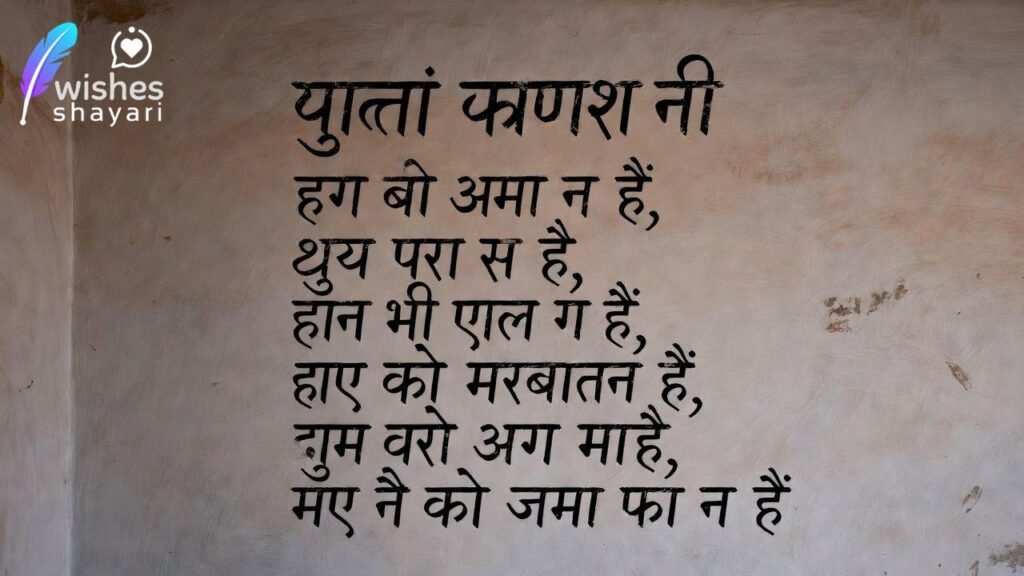 wishes
shayari
युात्तां कणश नी
हग बो अमा न हैं,
थुय परा स है,
हान भी एाल ग हैं,
हाए को मरबातन हैं,
गुम वरो अग माहै,
मए नै को जमा फा न हैं